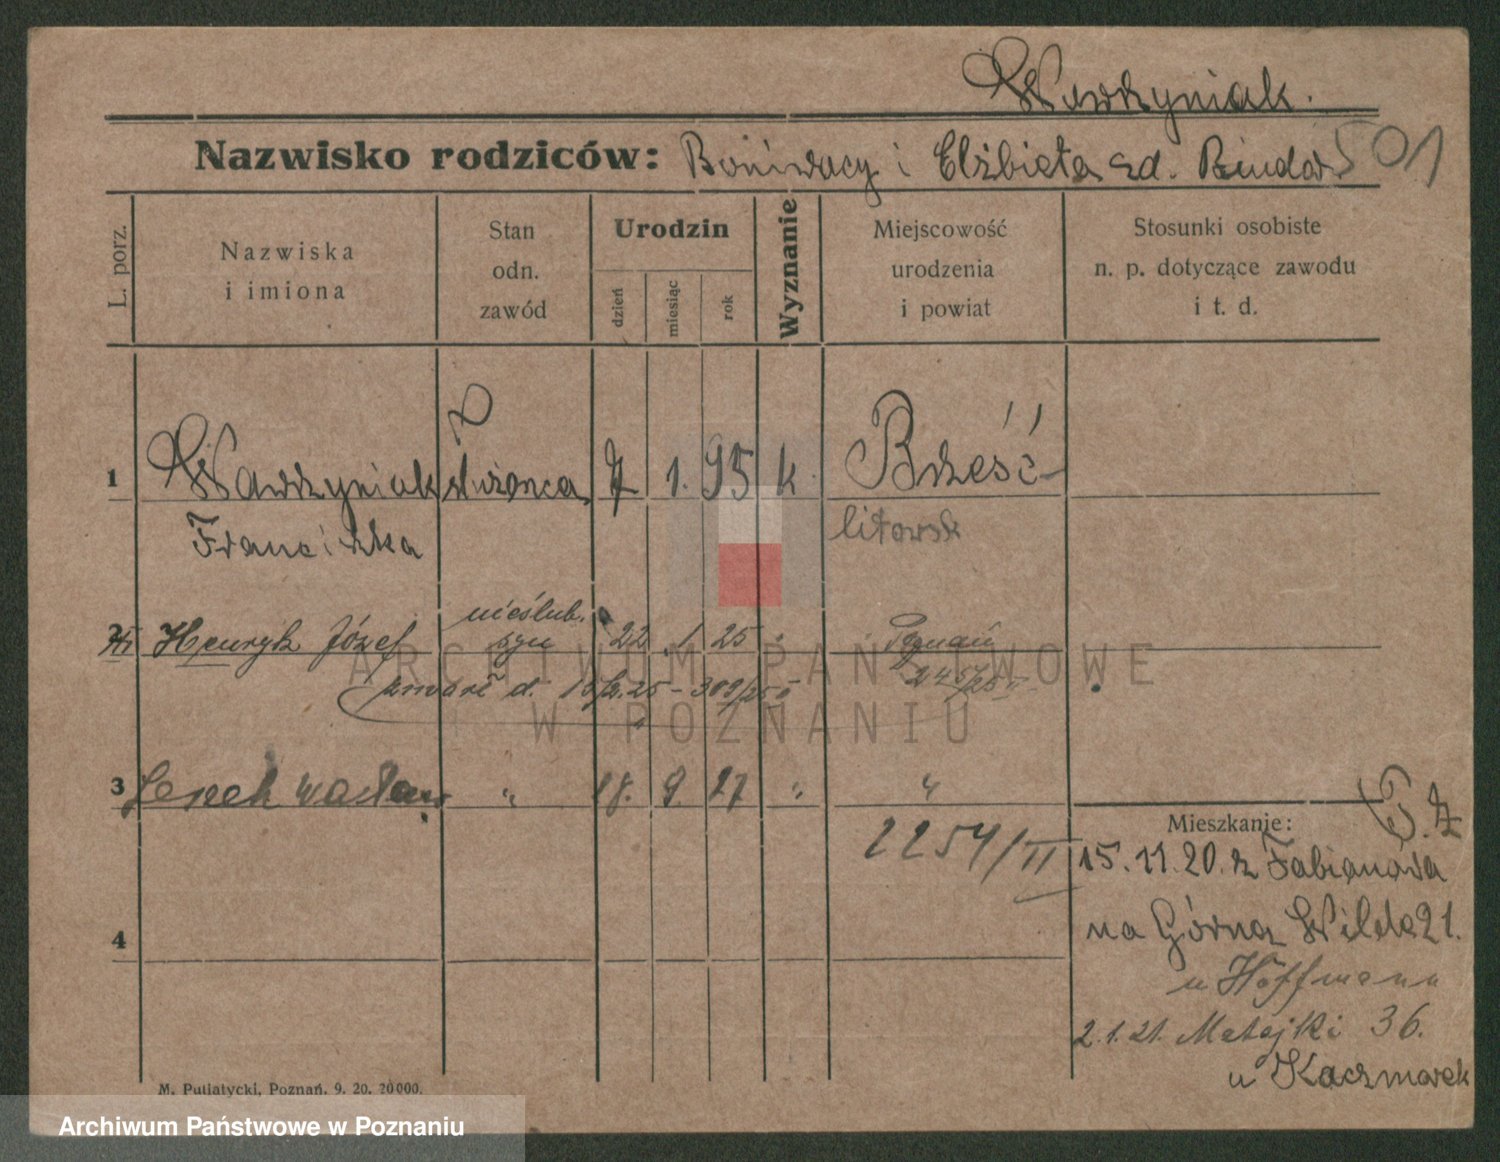 Wawrzyniak.
Nazwisko rodziców: Boniwacy i Elżbieta zd. Bindar 501
L. porz.
Nazwiska i imiona
Stan odn. zawód
Urodzin
dzień
miesiąc
rok
Wyznanie
Miejscowość urodzenia i powiat
Stosunki osobiste n. p. dotyczące zawodu i t. d.
1 Wawrzyniak służąca 7 1. 95 k. Brześć
Franciszka litowsk
nieślub.
2 Henryk Józef syn 22 1 25 " Poznań
zmarł d. 15/2.25 - 309/25 II 245/25 II
3 Leszek Wacław " 18. 9. 27 " "
2254/II
Mieszkanie:
15.11.20. z Fabianowa
na Górną Wilda 21.
u Hoffmann
2.1.21. Matejki 36.
u Kaczmarek
4
M. Putiatycki, Poznań. 9. 20. 20000.
ARCHIWUM PAŃSTWOWE
W POZNANIU
Archiwum Państwowe w Poznaniu